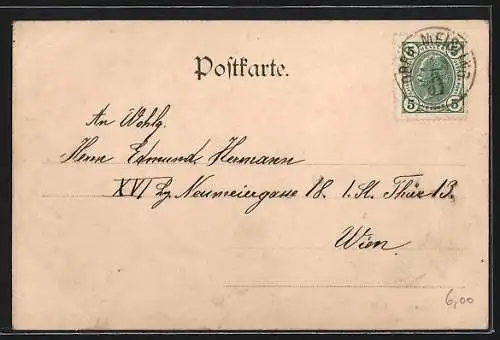 Postkarte.
5 5
An Wohlg.
Herrn Edmund Hermann
XVI Bz. Neumeiergasse 18. 1. St. Thür 13.
Wien.
6,00